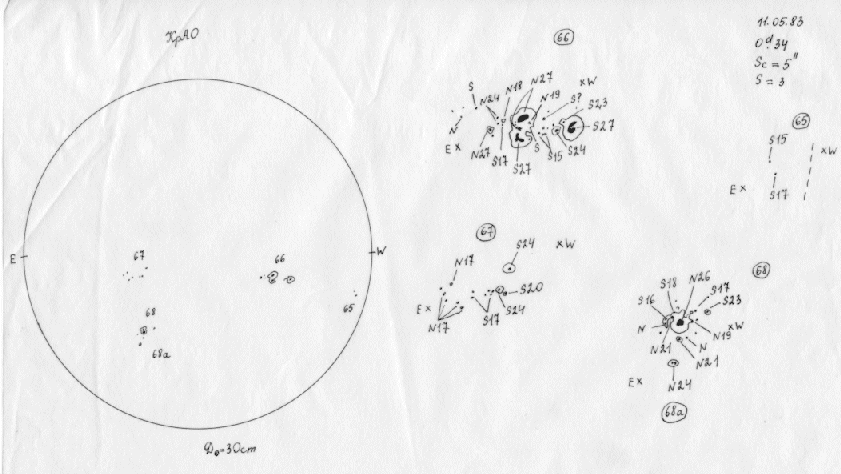 КрАО
11.05.83
0ᵈ.34
Sc = 5"
S = 3
66
S
N24
N18
N27
N19
S?
xW
S23
N
S27
E x
N27
S17
S27
S
S15
S24
65
S15
xW
E x
S17
E
W
67
66
68
65
68a
D₀=30cm
67
N17
S24
xW
E x
S20
N17
S17
S24
68
S18
N26
S17
S16
S23
N
N19
xW
N21
N
N21
E x
N24
68a